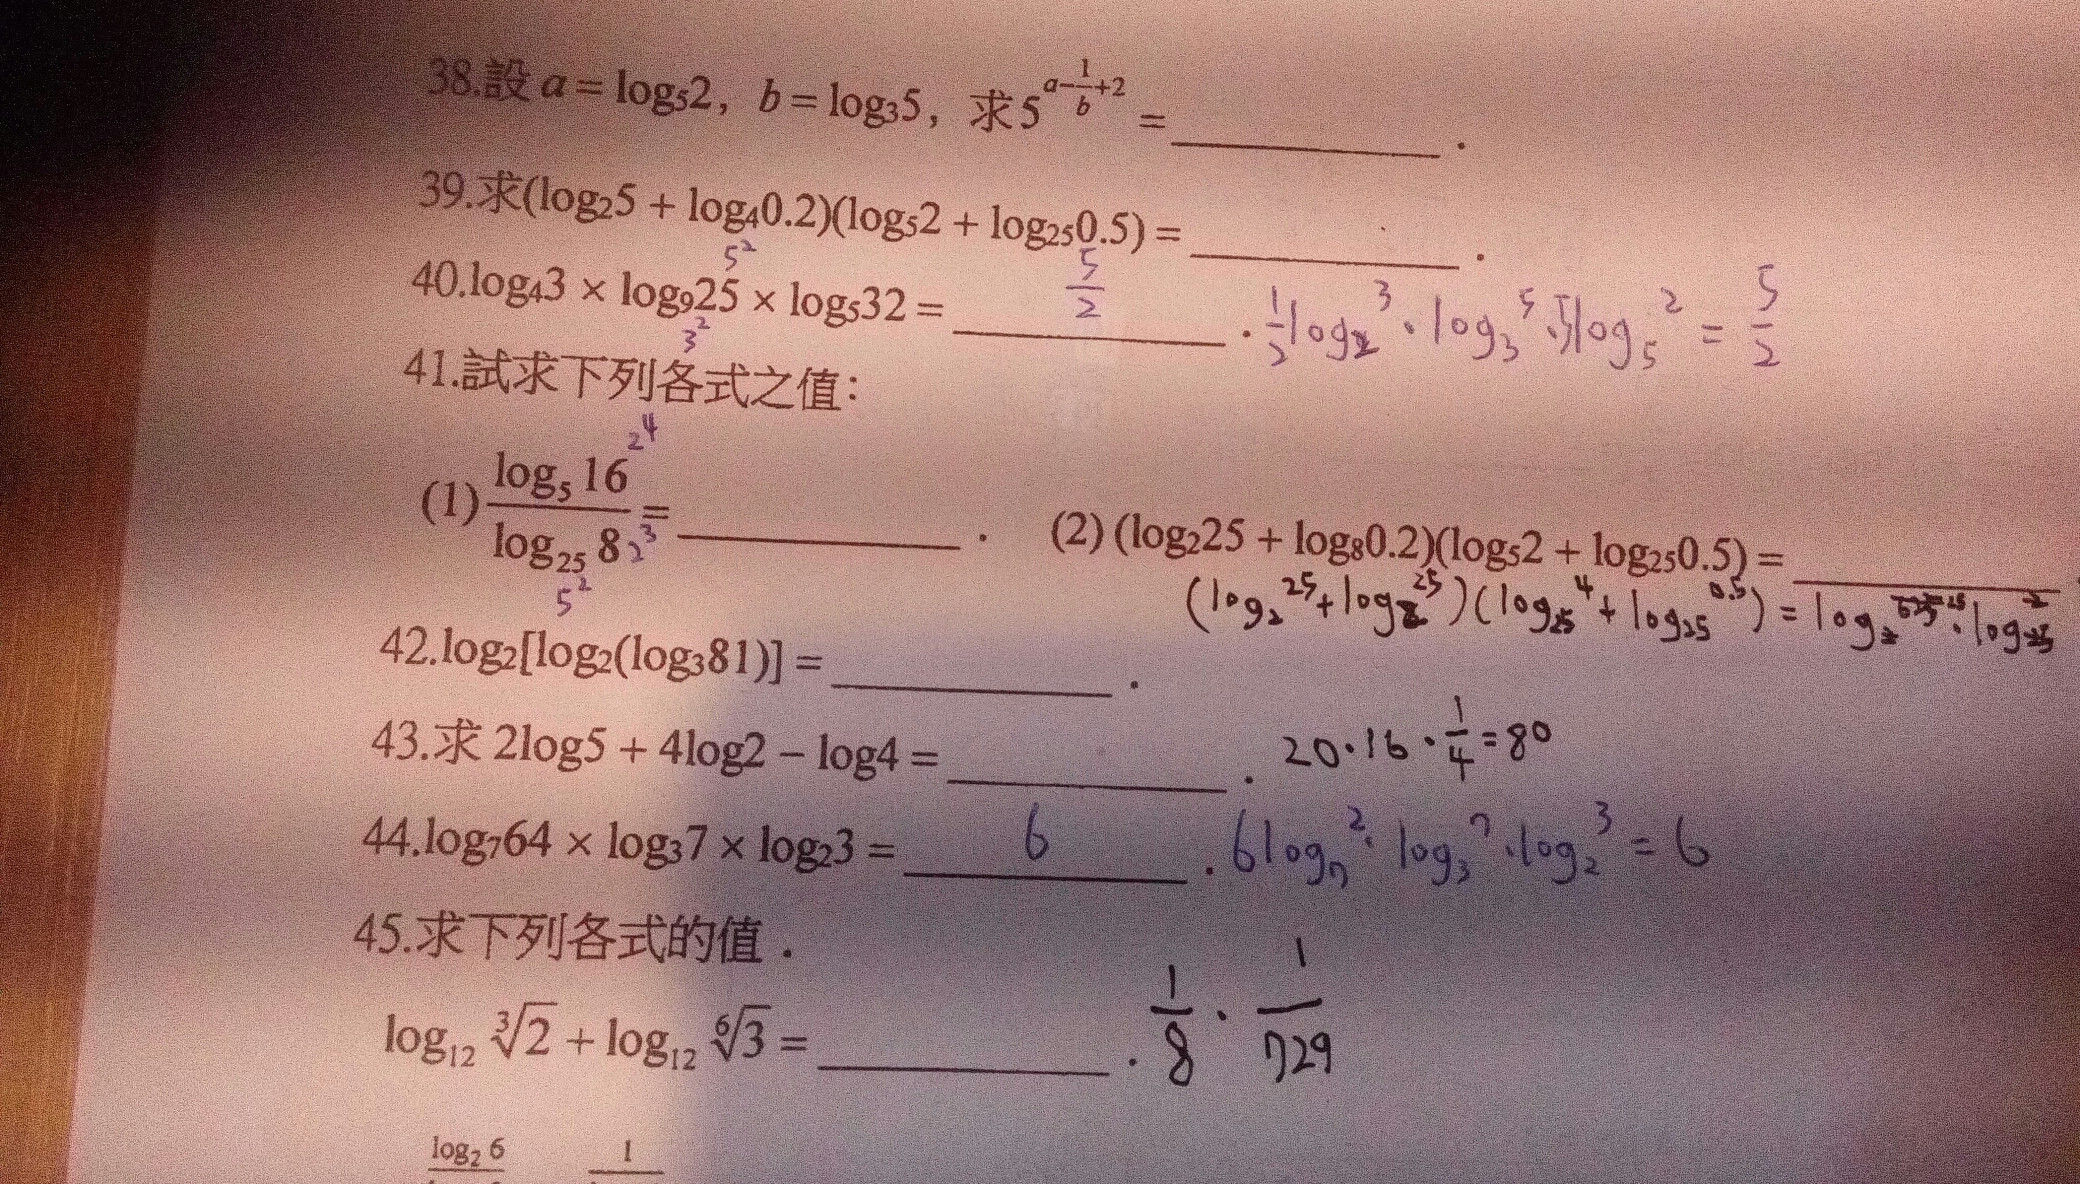 38.設 a = log₅2，b = log₃5，求5^(a−1/b+2) = ________ .
39.求(log₂5 + log₄0.2)(log₅2 + log₂₅0.5) = ________ .
5²
40.log₄3 × log₉25 × log₅32 = 5/2 . 1/2 log₂3 · log₃5 · 5log₅2 = 5/2
3²
41.試求下列各式之值：
2⁴
(1) log₅16 / log₂₅8 = ________ . (2) (log₂25 + log₈0.2)(log₅2 + log₂₅0.5) = ________
2³
5²
(log₂25 + log₂25)(log₂₅4 + log₂₅0.5) = log₂ · log
42.log₂[log₂(log₃81)] = ________ .
43.求 2log5 + 4log2 − log4 = ________ . 20·16·1/4=80
44.log₇64 × log₃7 × log₂3 = 6 . 6log₇2 · log₃7 · log₂3 = 6
45.求下列各式的值．
log₁₂ ∛2 + log₁₂ ⁶√3 = ________ . 1/8 · 1/729
log₂6 1